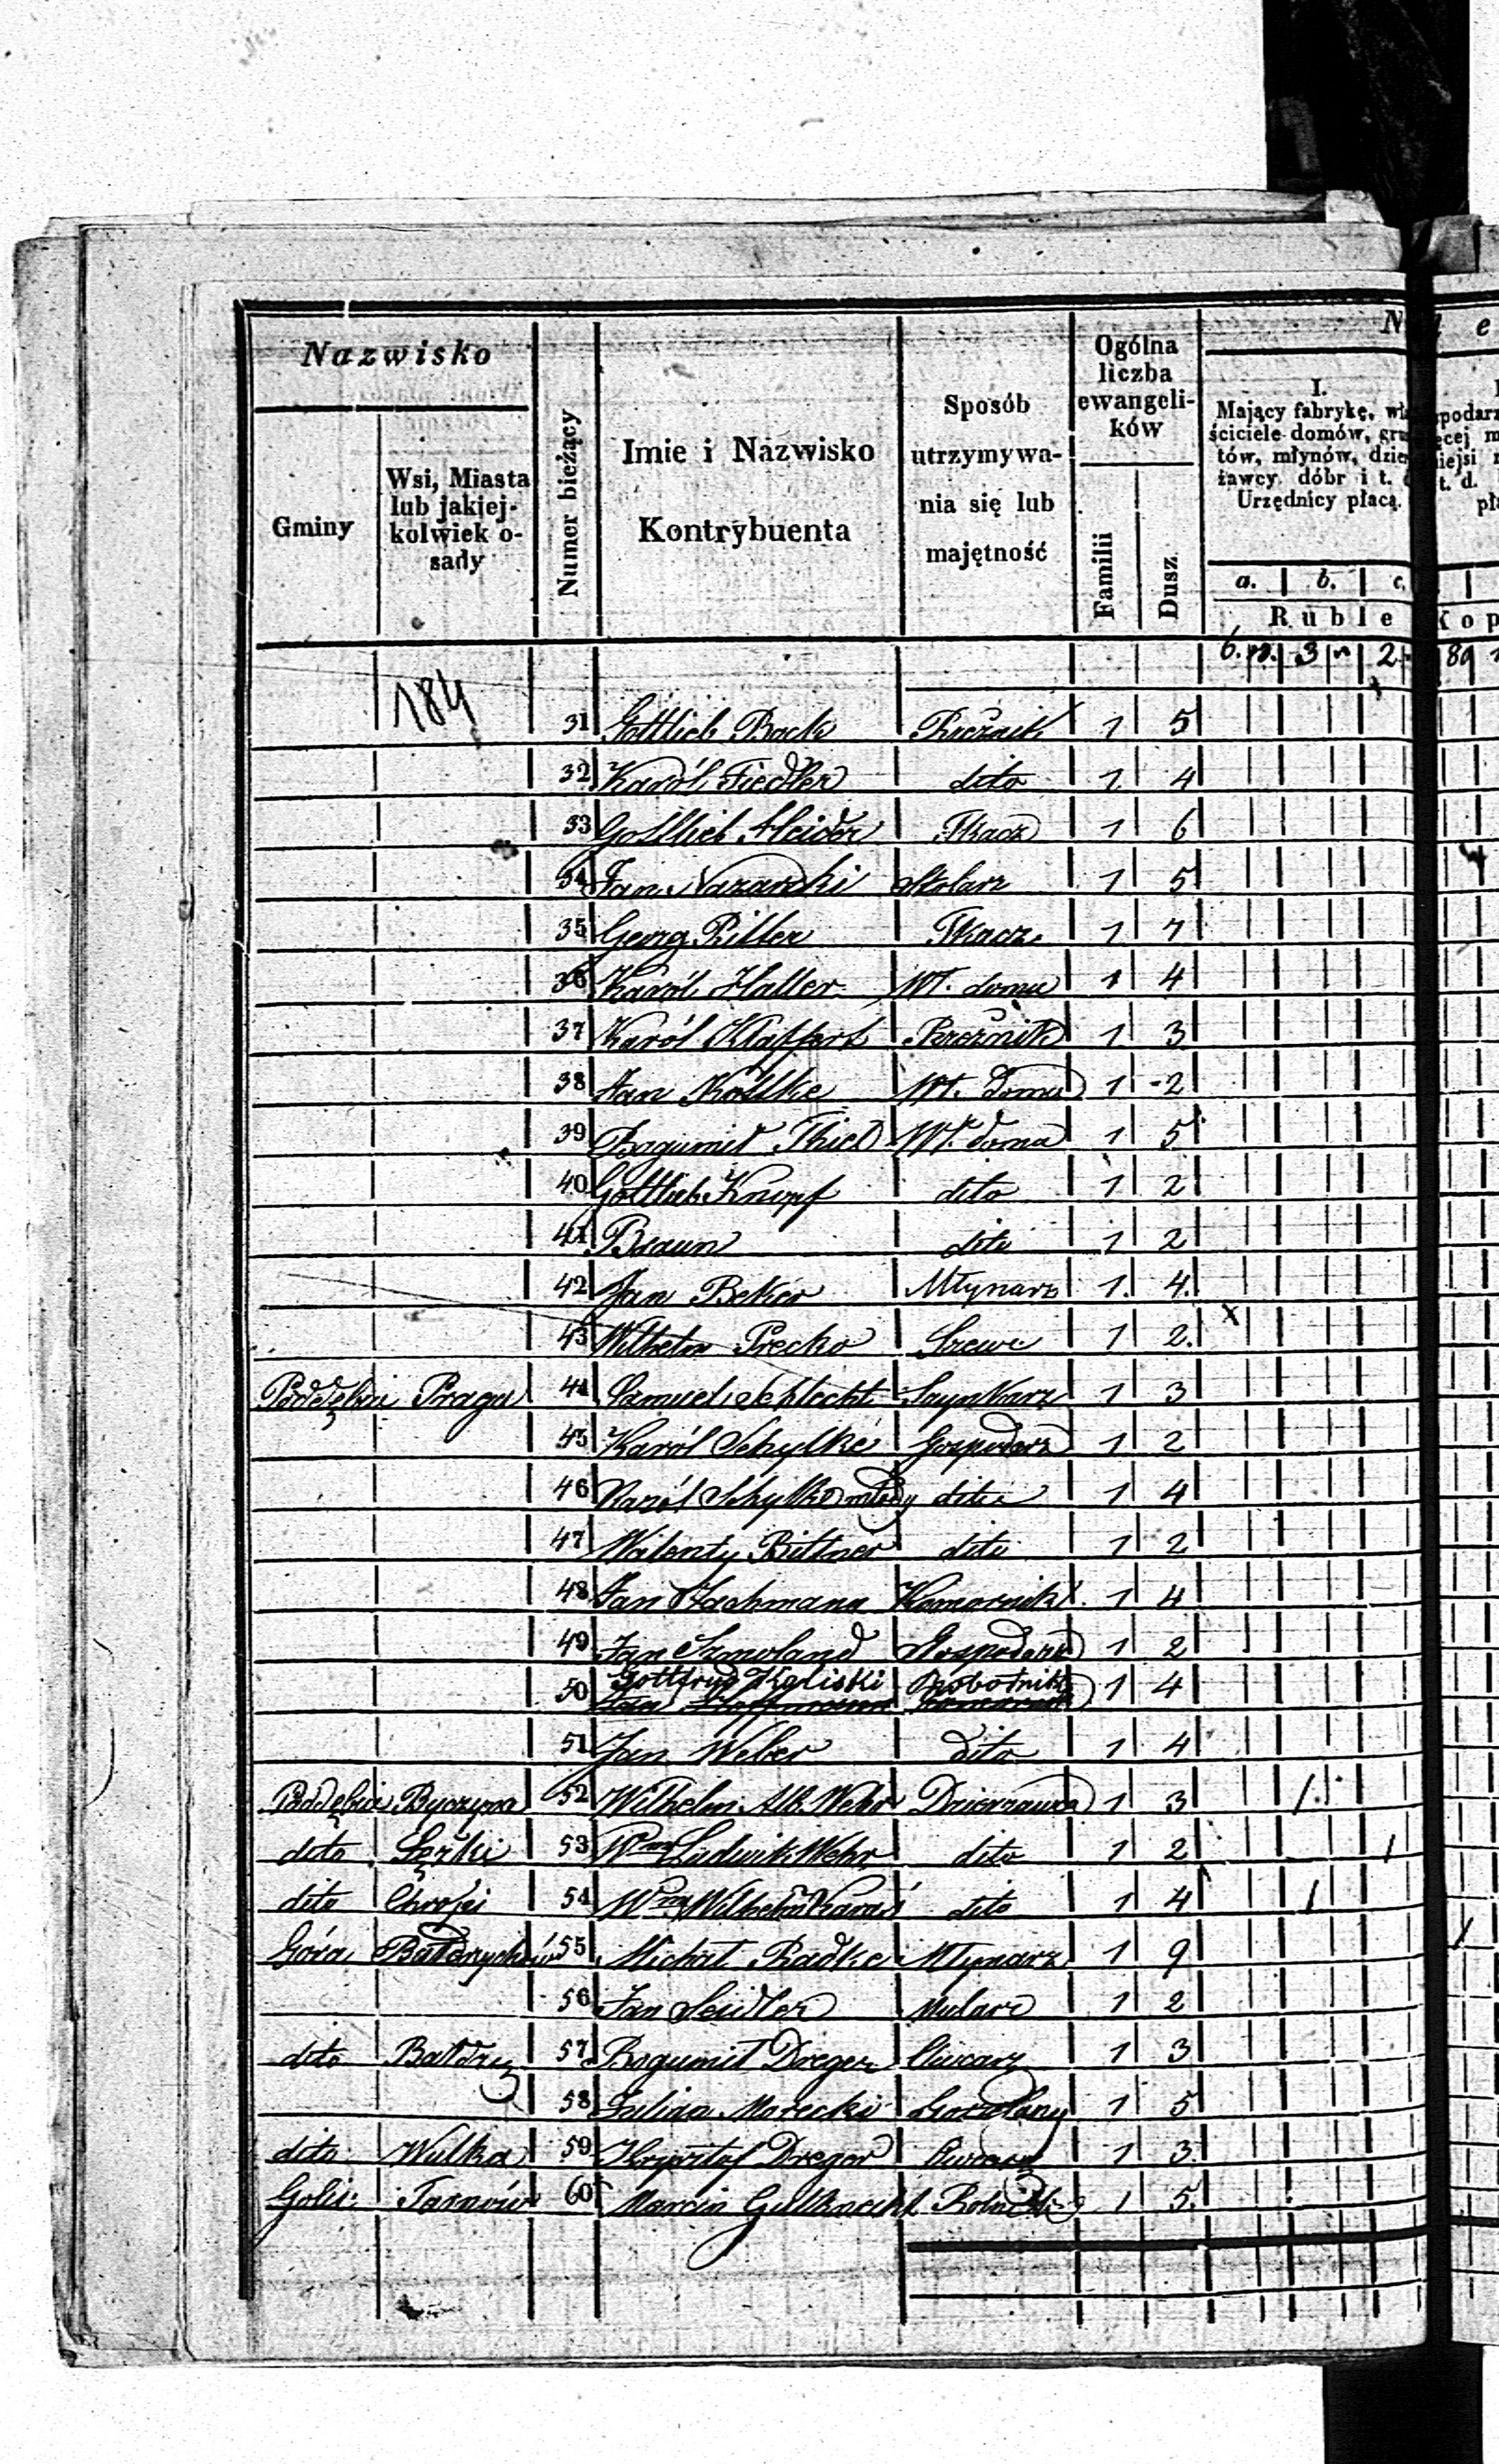 Nazwisko
Gminy
Wsi, Miasta
lub jakiej-
kolwiek o-
sady
Numer bieżący
Imie i Nazwisko
Kontrybuenta
Sposób
utrzymywa-
nia się lub
majętność
Ogólna
liczba
ewangeli-
ków
Familii
Dusz
I.
Mający fabrykę,
ściciele domów,
tów, młynów,
żawcy dóbr i t.
Urzędnicy płacą.
a. b. c.
Ruble Kop
3 2 80
184
31 Gottlieb Bock 1 5
32 Karól Fiedler dito 1 4
33 Gottlieb Tkacz 1 6
34 Jan Stolarz 1 5
35 Georg Ritter Tkacz 1 7
36 Karól Haller Wł. domu 1 4
37 Karól 1 3
38 Jan Wł. domu 1 2
39 Bogumił Wł. domu 1 5
40 Gottlieb Knopf dito 1 2
41 Braun dito 1 2
42 Jan Beker Młynarz 1. 4.
43 Wilhelm Szewc 1 2.
Poddębice Praga 44 Samuel Schlecht 1 3
45 Karól Schylke Gospodarz 1 2
46 Karól Schylke młody dito 1 4
47 Walenty Bittner dito 1 2
48 Jan Komornik 1 4
49 Jan Gospodarz 1 2
50 Gottfryd Kaliski Robotnik 1 4
51 Jan Weber dito 1 4
Poddębice Byczyna 52 Wilhelm Alb. Wehr Dzierzawca 1 3 1
dito 53 Ludwik Wehr dito 1 2 1
dito 54 dito 1 4 1
Góra Bałdrychów 55 Michał Radke Młynarz 1 9
56 Jan Seidler Mularz 1 2
dito 57 Bogumił Dreger Owczarz 1 3
58 Julian 1 5
dito Wulka 59 Krysztof Dreger Owczarz 1 3
60 Marcin Gutknecht Rolnik 1 5.